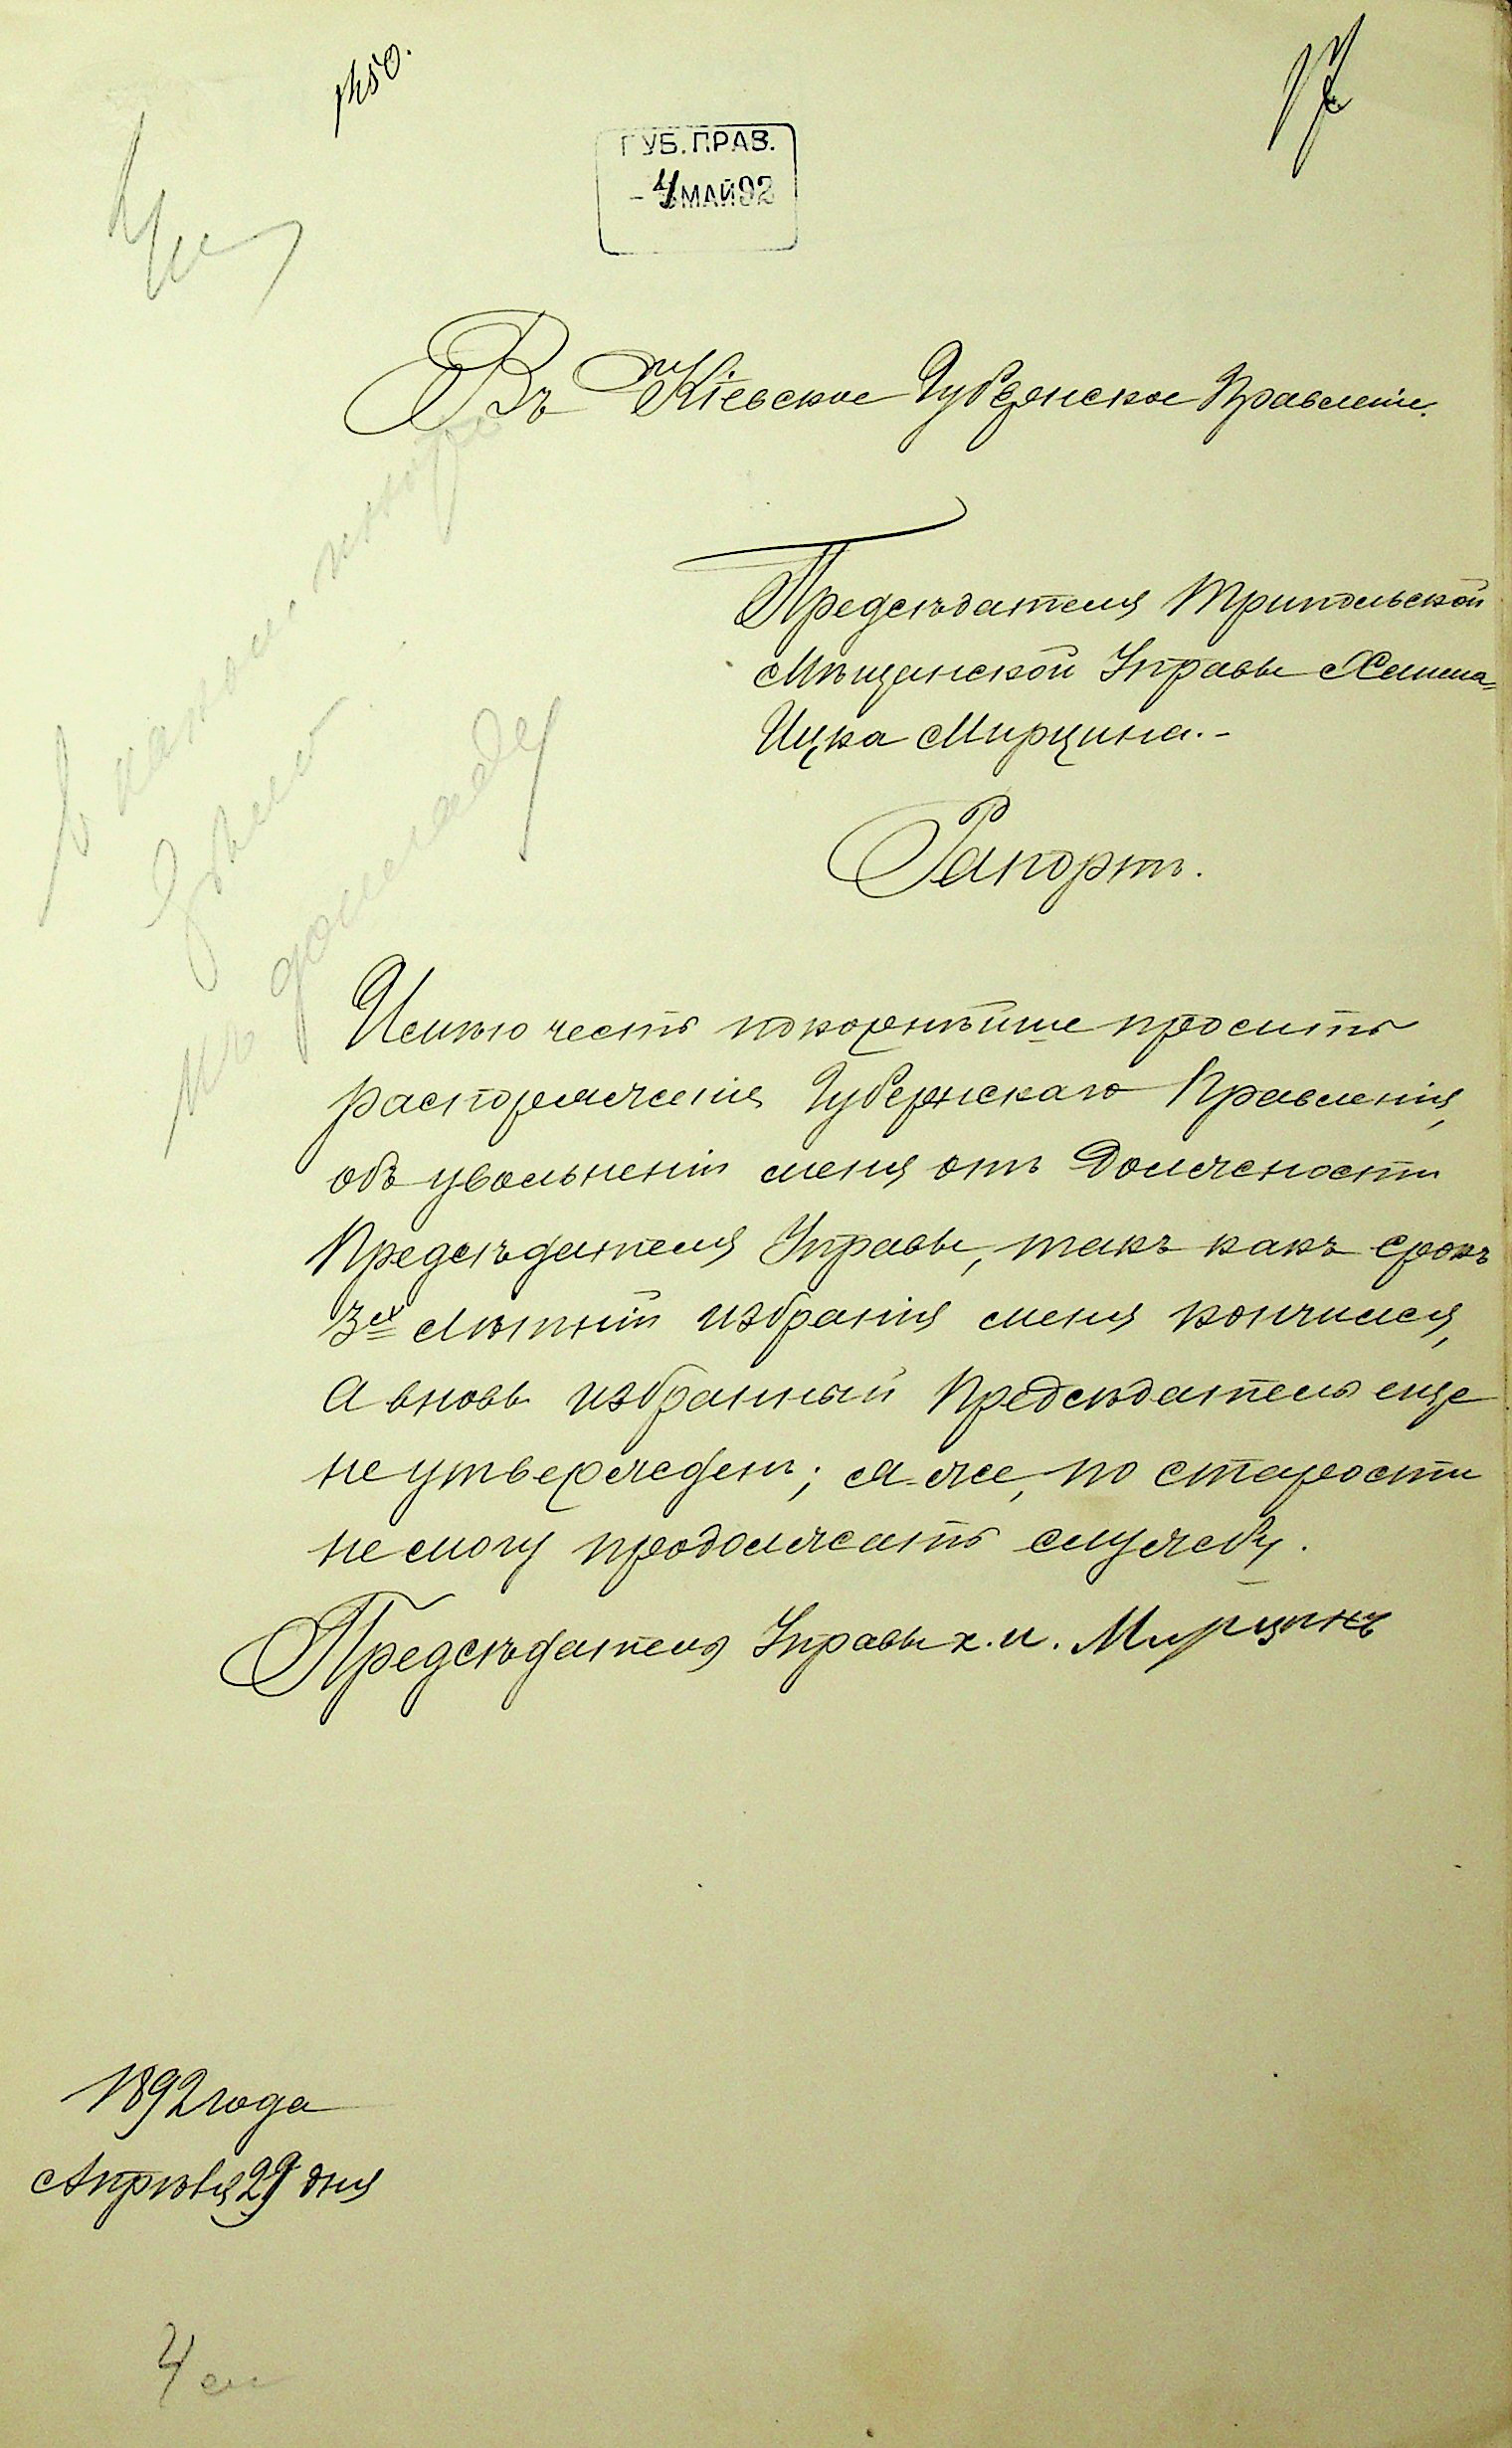 17
ГУБ.ПРАВ.
-4 МАЙ 92
Въ Кіевское Губернское Правленіе.
Предсѣдателя Трипольской
Мѣщанской Управы Хаима-
Ицка Мирцина.-
Рапортъ.
Имѣю честь покорнѣйше просить
распоряженія Губернскаго Правленія,
объ увольненіи меня отъ должности
Предсѣдателя Управы, такъ какъ срокъ
3ех лѣтній избранія меня кончился,
а вновь избранный Предсѣдатель еще
не утвержденъ; я-же, по старости
не могу продолжать службу.
Предсѣдатель Управы Х.И. Мирцинъ
1892 года
Апрѣля 29 дня
В какомъ
къ докладу